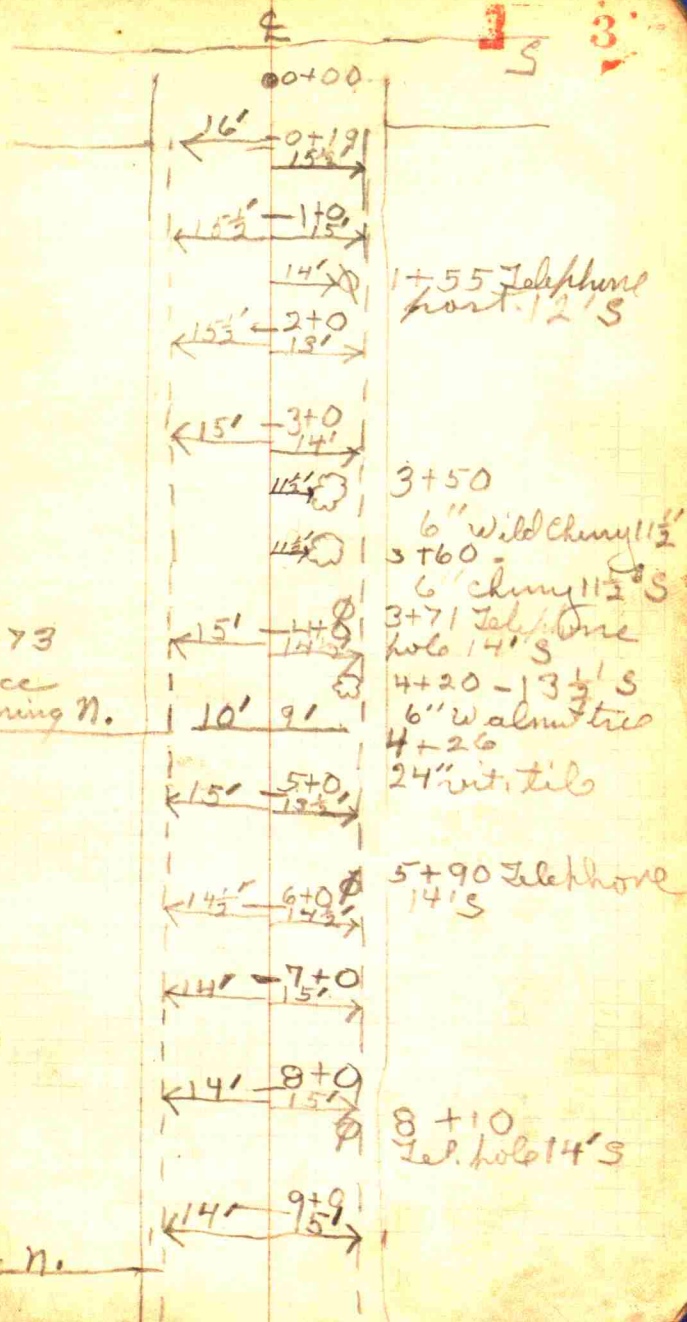 ℄
1 3
S
0+00
16' 0+19
15½'
15½' 1+0
15'
14' 1+55 Telephone
post. 12'S
15½' 2+0
13'
15' 3+0
14'
11½' 3+50
6" Wild Cherry 11½'
11½' 3+60
6" Cherry 11½' S
3+71 Telephone
pole 14'S
73 15' 4+0
14½'
4+20 - 13½' S
6" Walnut tree
N. 10' 9'
4+26
24" vit. tile
15' 5+0
13½'
5+90 Telephone
14'S
14½' 6+0
14½'
14' 7+0
15'
14' 8+0
15'
8+10
Tel. pole 14'S
14' 9+0
15'
N.